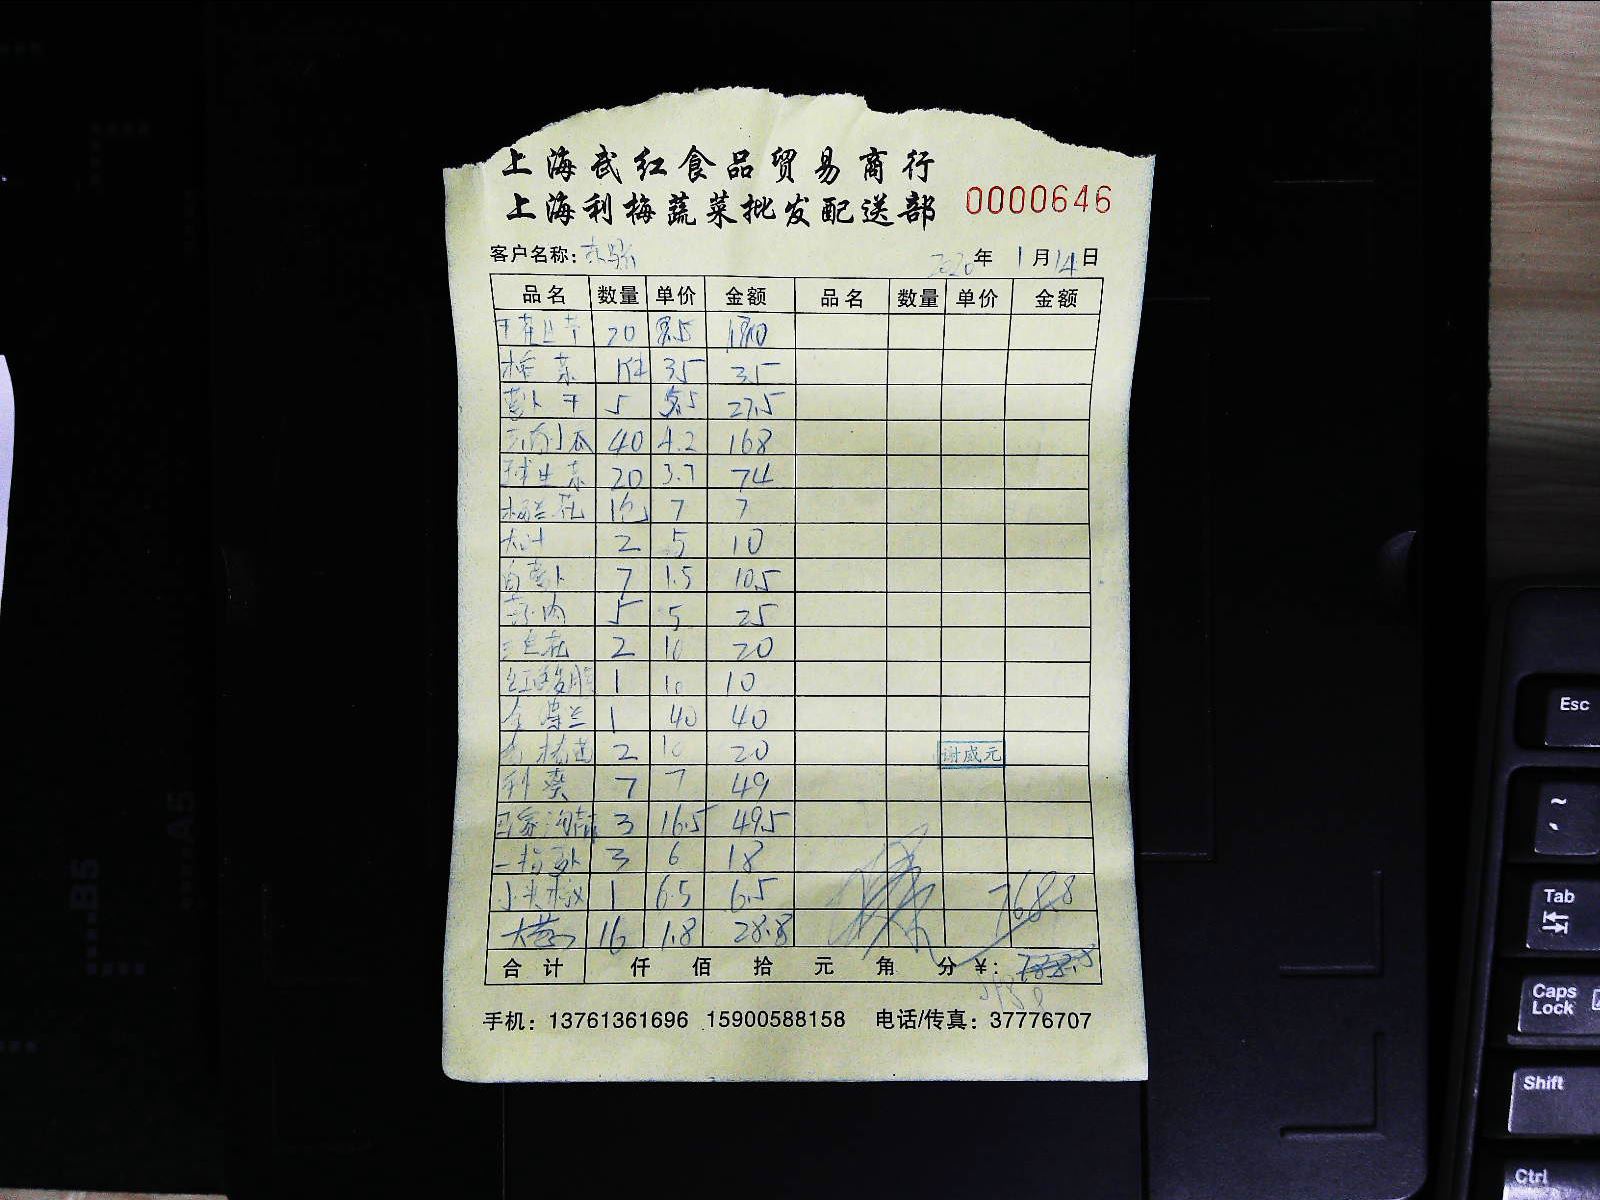 上海武红食品贸易商行
上海利梅蔬菜批发配送部 0000646
客户名称: 2020年 1月14日
品名 数量 单价 金额 品名 数量 单价 金额
20 8.5 170
1件 35 35
萝卜干 5 5.5 27.5
40 4.2 168
球生菜 20 3.7 74
杨兰花 1包 7 7
大叶 2 5 10
白萝卜 7 1.5 10.5
5 5 25
三色花 2 10 20
1 10 10
1 40 40
2 10 20
7 7 49
3 16.5 49.5
3 6 18
小米椒 1 6.5 6.5
16 1.8 28.8
谢咸元
768.8
合计 仟 佰 拾 元 角 分 ¥:
手机: 13761361696 15900588158 电话/传真: 37776707
B5
A5
Esc
~
Tab
Caps Lock
Shift
Ctrl